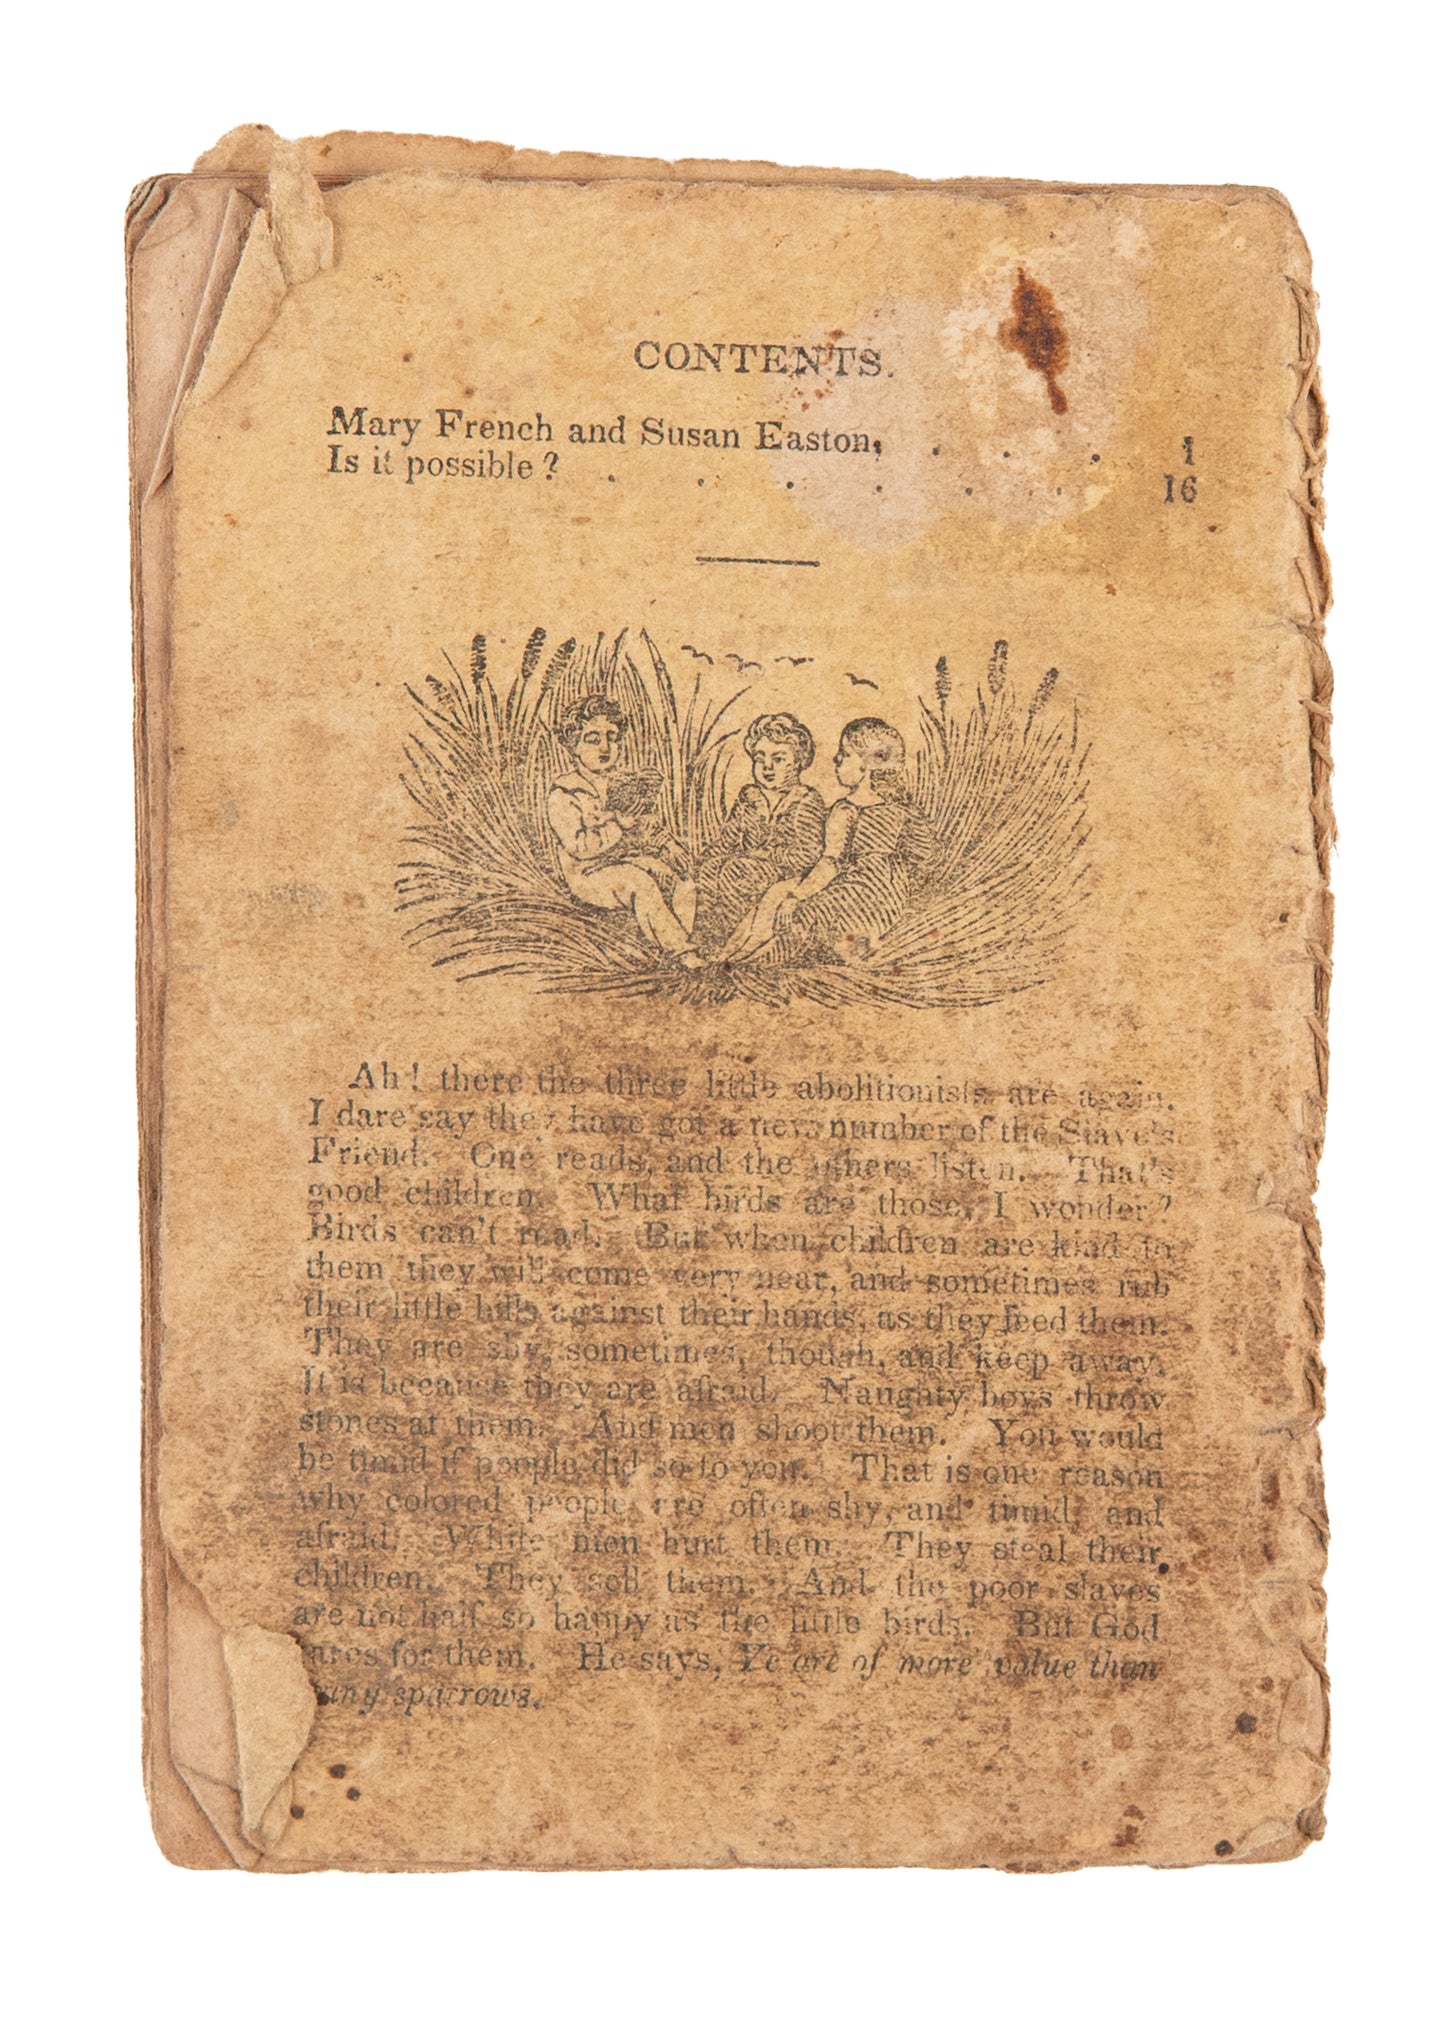 CONTENTS.
Mary French and Susan Easton, . . . 1
Is it possible? . . . . . . 16
Ah! there the three little abolitionists are again.
I dare say they have got a new number of the Slave's
Friend. One reads, and the others listen. That's
good children. What birds are those, I wonder?
Birds can't read. But when children are kind to
them they will come very near, and sometimes rub
their little bills against their hands, as they feed them.
They are shy, sometimes, though, and keep away.
It is because they are afraid. Naughty boys throw
stones at them. And men shoot them. You would
be timid if people did so to you. That is one reason
why colored people are often shy, and timid, and
afraid. White men hurt them. They steal their
children. They sell them. And the poor slaves
are not half so happy as the little birds. But God
cares for them. He says, Ye are of more value than
many sparrows.